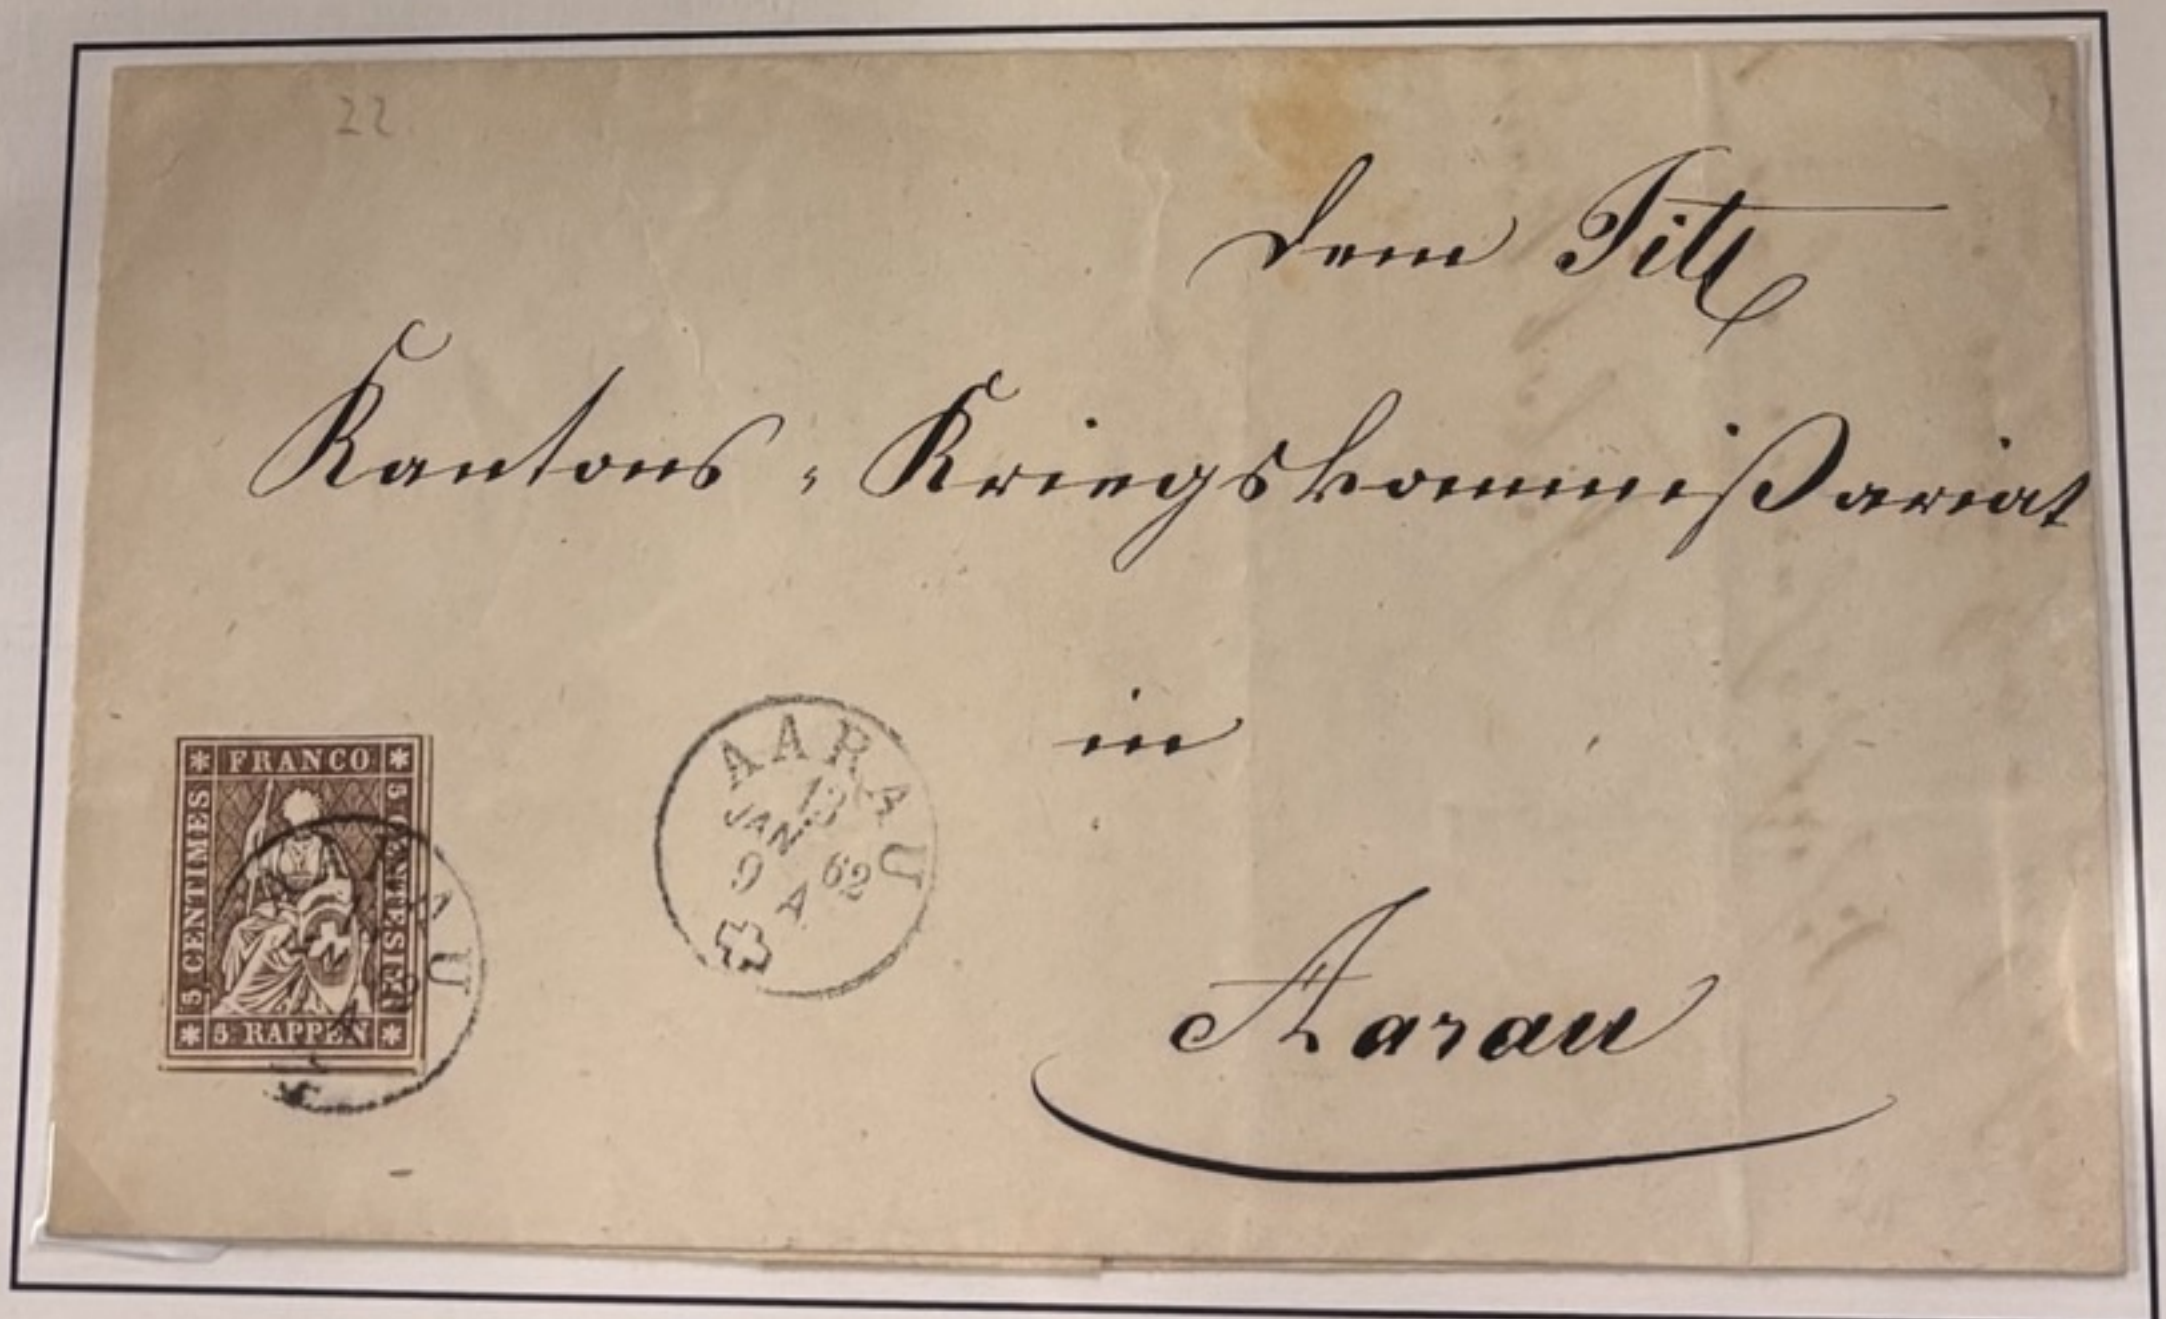 22.
Dem Titl
Kantons-Kriegskommißariat
in
Aarau
FRANCO
5 CENTIMES
5 CENTESIMI
5 RAPPEN
AARAU
13
JAN
9 A 62
AU